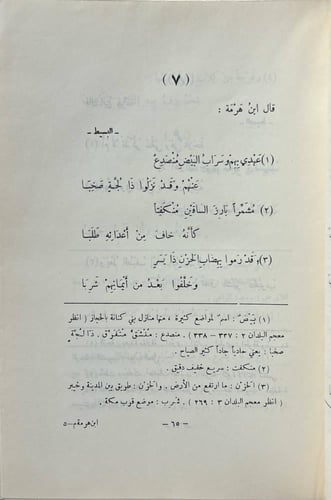 (٧)
قال ابنُ هَرْمَة :
ـ البسيط ـ
(١) عَهْدِي بِهِمْ وَسَرَابُ البَيْضِ مُنْصَدِعٌ
عَنْهُمْ وَقَدْ نَزَلُوا ذَا لُجَّةٍ صَخِبَا
(٢) مُشَمِّراً بَارِزَ السَّاقَيْنِ مُنْكَفِتاً
كَأَنَّهُ خَافَ مِنْ أَعْدَائِهِ طَلَبَا
(٣) وَقَدْ رَمَوا بِهِضَابِ الحَزْنِ ذَا يَسَرٍ
وَخَلَّفُوا بَعْدُ مِنْ أَيْمَانِهِمْ شَرِبَا
(١) بَيْضٌ : اسم لمواضع كثيرة ، منها منازل بني كنانة بالحجاز ( انظر
معجم البلدان ٢ : ٣٣٧ - ٣٣٨ . منصدع : مُنْشَقٌّ مُتَفَرِّق . ذا لُجَّة
صخبا : يعني حادياً جاداً كثير الصياح .
(٢) منكفت : سريع خفيف دقيق .
(٣) الحَزْن : ما ارتفع من الأرض . والحزن : طريق بين المدينة وخيبر
( انظر معجم البلدان ٣ : ٢٦٩ ) . شرب : موضع قرب مكة .
ـ ٦٥ ـ
ابن هرمة م ـ ٥